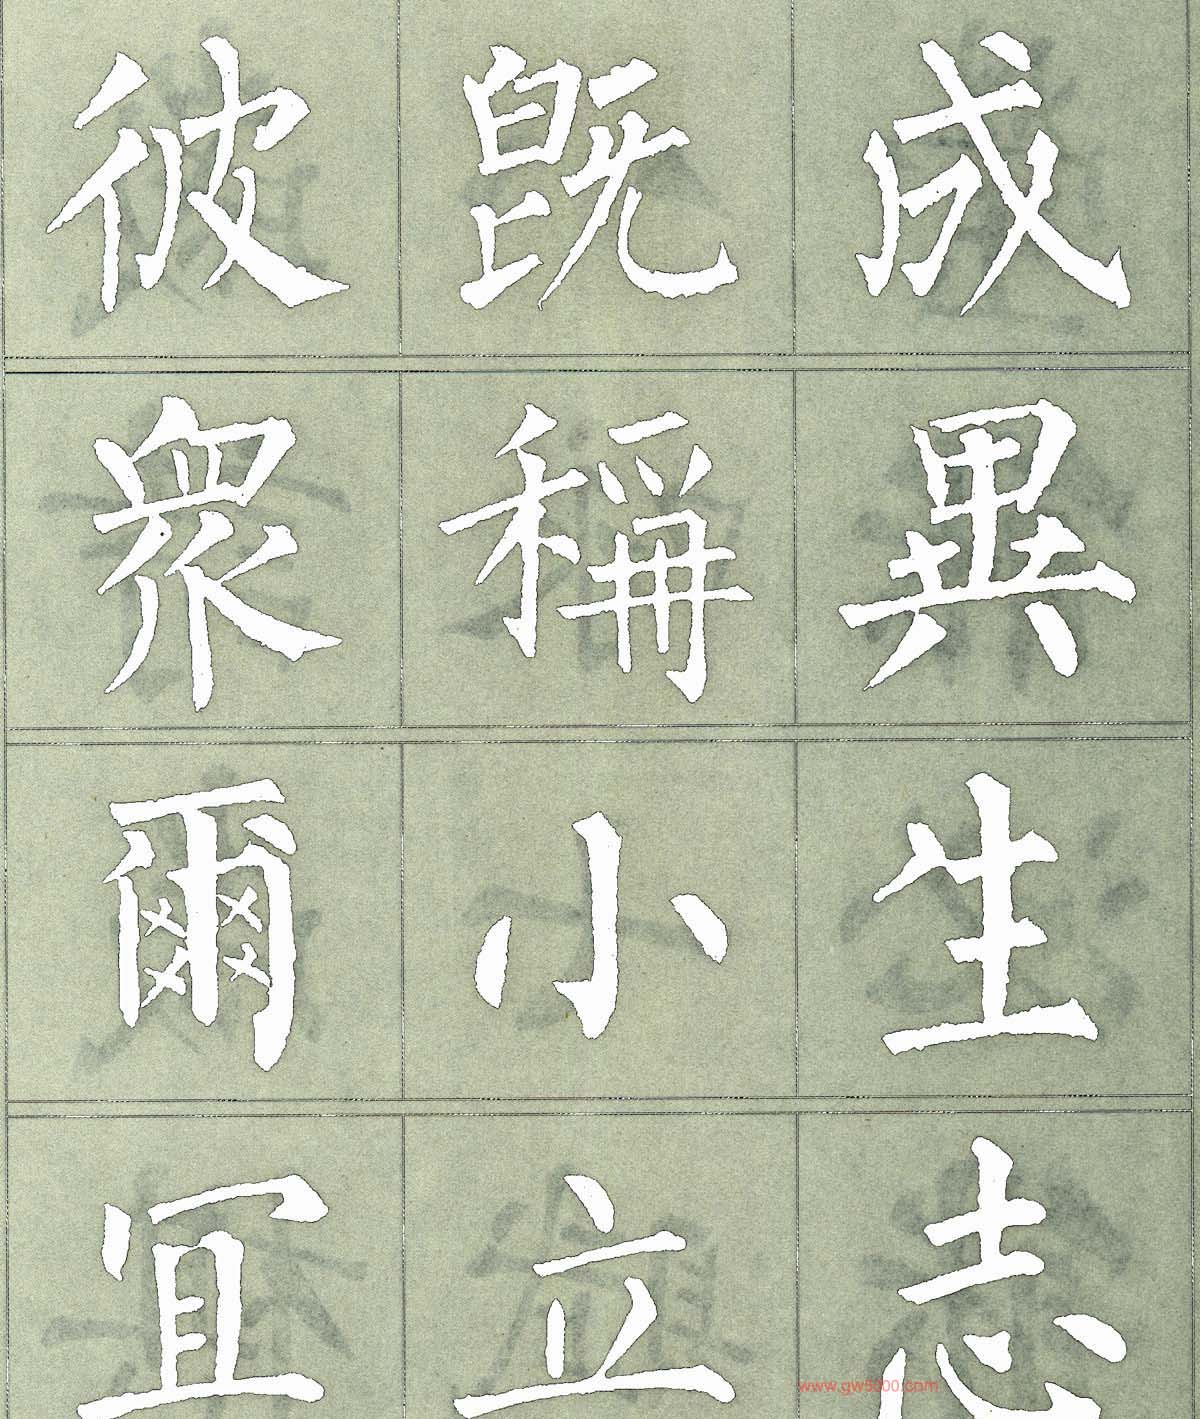 彼既成
眾稱異
爾小生
冝立志
www.gw5000.com